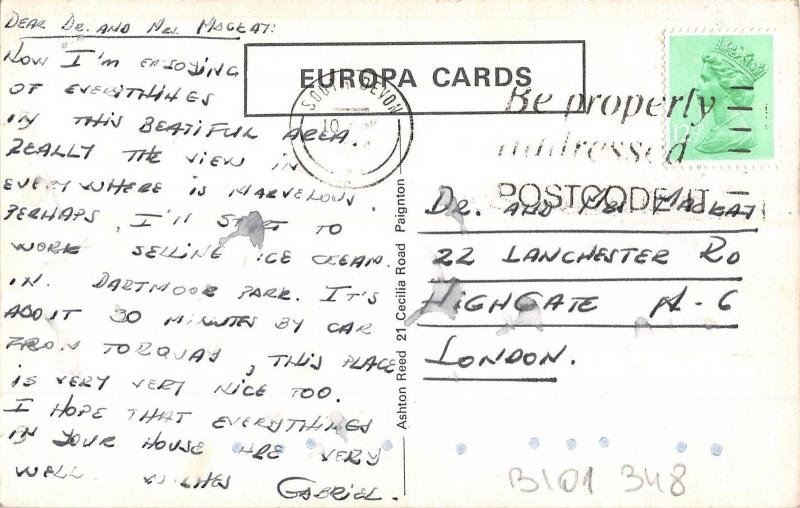 DEAR DR. AND MRS. MACKAY:
NOW I'M ENJOYING
OF EVERITHINGS
IN THIS BEATIFUL AREA.
REALLY THE VIEW IN
EVERYWHERE IS MARVELOUS.
PERHAPS, I'LL START TO
WORK SELLING ICE CREAM.
IN. DARTMOOR PARK. IT'S
ABOUT 30 MINUTES BY CAR
FROM TORQUAY, THIS PLACE
IS VERY VERY NICE TOO.
I HOPE THAT EVERYTHINGS
IN YOUR HOUSE ARE VERY
WELL. WISHES GABRIEL.
EUROPA CARDS
SOUTH DEVON
10
Be properly
addressed
POSTCODE IT
Ashton Reed 21 Cecilia Road Paignton
DR. AND MRS MACKAY
22 LANCHESTER RD
HIGHGATE N-6
LONDON.
B101 348